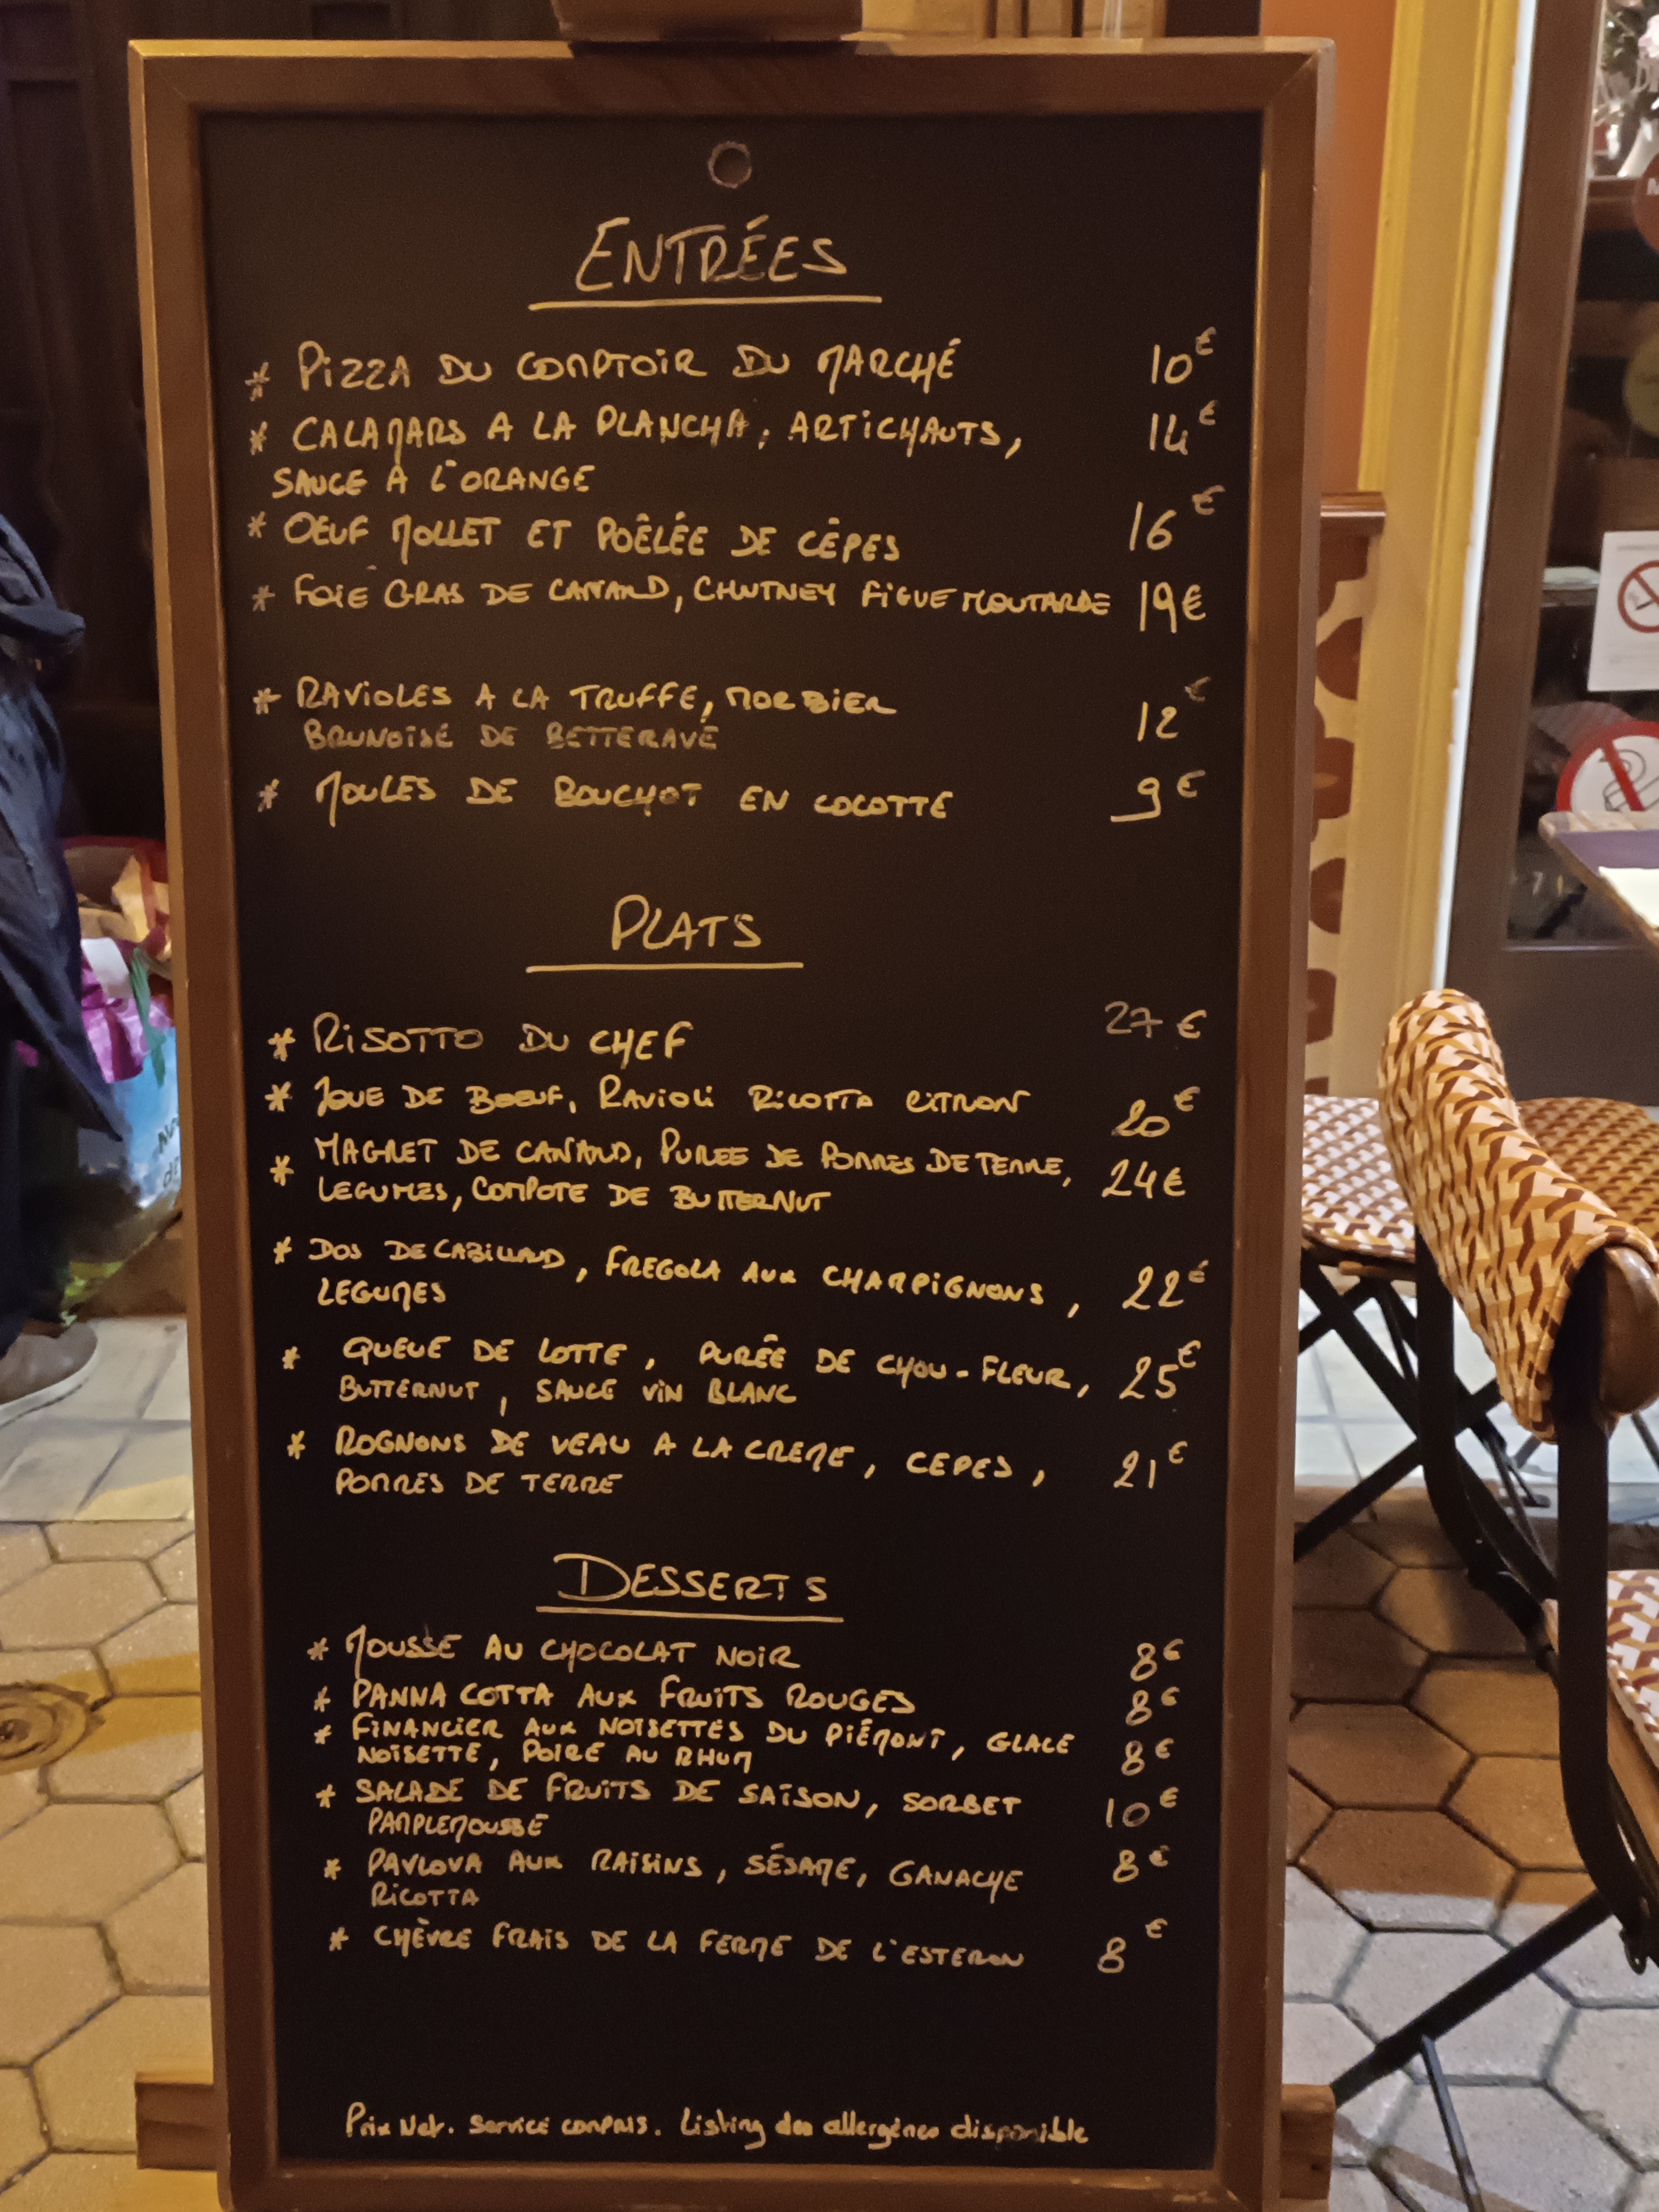 ENTRÉES
* PIZZA DU COMPTOIR DU MARCHÉ 10€
* CALAMARS A LA PLANCHA, ARTICHAUTS, 14€
SAUCE A L'ORANGE
* OEUF MOLLET ET POÊLÉE DE CÊPES 16€
* FOIE GRAS DE CANARD, CHUTNEY FIGUE MOUTARDE 19€
* RAVIOLES A LA TRUFFE, MORBIER 12€
BRUNOISE DE BETTERAVE
* MOULES DE BOUCHOT EN COCOTTE 9€
PLATS
* RISOTTO DU CHEF 27€
* JOUE DE BOEUF, RAVIOLI RICOTTA CITRON 20€
* MAGRET DE CANARD, PUREE DE POMMES DE TERRE, 24€
LEGUMES, COMPOTE DE BUTTERNUT
* DOS DE CABILLAUD, FREGOLA AUX CHAMPIGNONS, 22€
LEGUMES
* QUEUE DE LOTTE, PURÊE DE CHOU-FLEUR, 25€
BUTTERNUT, SAUCE VIN BLANC
* ROGNONS DE VEAU A LA CREME, CEPES, 21€
POMMES DE TERRE
DESSERTS
* MOUSSE AU CHOCOLAT NOIR 8€
* PANNA COTTA AUX FRUITS ROUGES 8€
* FINANCIER AUX NOISETTES DU PIÉMONT, GLACE 8€
NOISETTE, POIRE AU RHUM
* SALADE DE FRUITS DE SAISON, SORBET 10€
PAMPLEMOUSSE
* PAVLOVA AUX RAISINS, SÉSAME, GANACHE 8€
RICOTTA
* CHÈVRE FRAIS DE LA FERME DE L'ESTERON 8€
Prix Net. Service compris. Listing des allergènes disponible